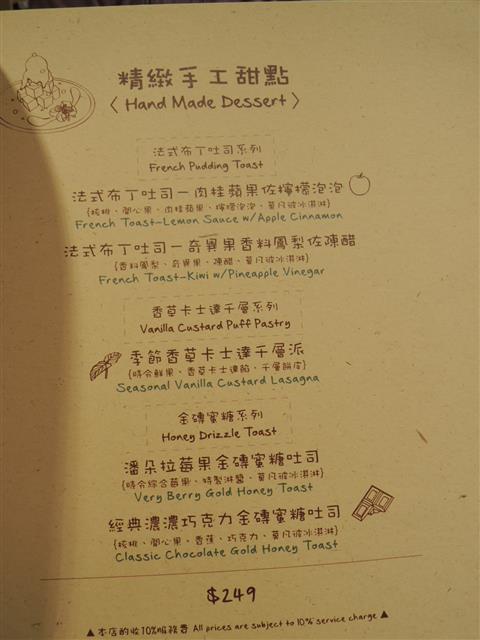 精緻手工甜點
〈 Hand Made Dessert 〉
法式布丁吐司系列
French Pudding Toast
法式布丁吐司－肉桂蘋果佐檸檬泡泡
{核桃、開心果、肉桂蘋果、檸檬泡泡、莫凡彼冰淇淋}
French Toast-Lemon Sauce w/Apple Cinnamon
法式布丁吐司－奇異果香料鳳梨佐陳醋
{香料鳳梨、奇異果、陳醋、莫凡彼冰淇淋}
French Toast-Kiwi w/Pineapple Vinegar
香草卡士達千層系列
Vanilla Custard Puff Pastry
季節香草卡士達千層派
{時令鮮果、香草卡士達餡、千層餅皮}
Seasonal Vanilla Custard Lasagna
金磚蜜糖系列
Honey Drizzle Toast
潘朵拉莓果金磚蜜糖吐司
{時令綜合莓果、特製淋醬、莫凡彼冰淇淋}
Very Berry Gold Honey Toast
經典濃濃巧克力金磚蜜糖吐司
{核桃、開心果、香蕉、巧克力、莫凡彼冰淇淋}
Classic Chocolate Gold Honey Toast
$249
▲ 本店酌收10%服務費 All prices are subject to 10% service charge ▲